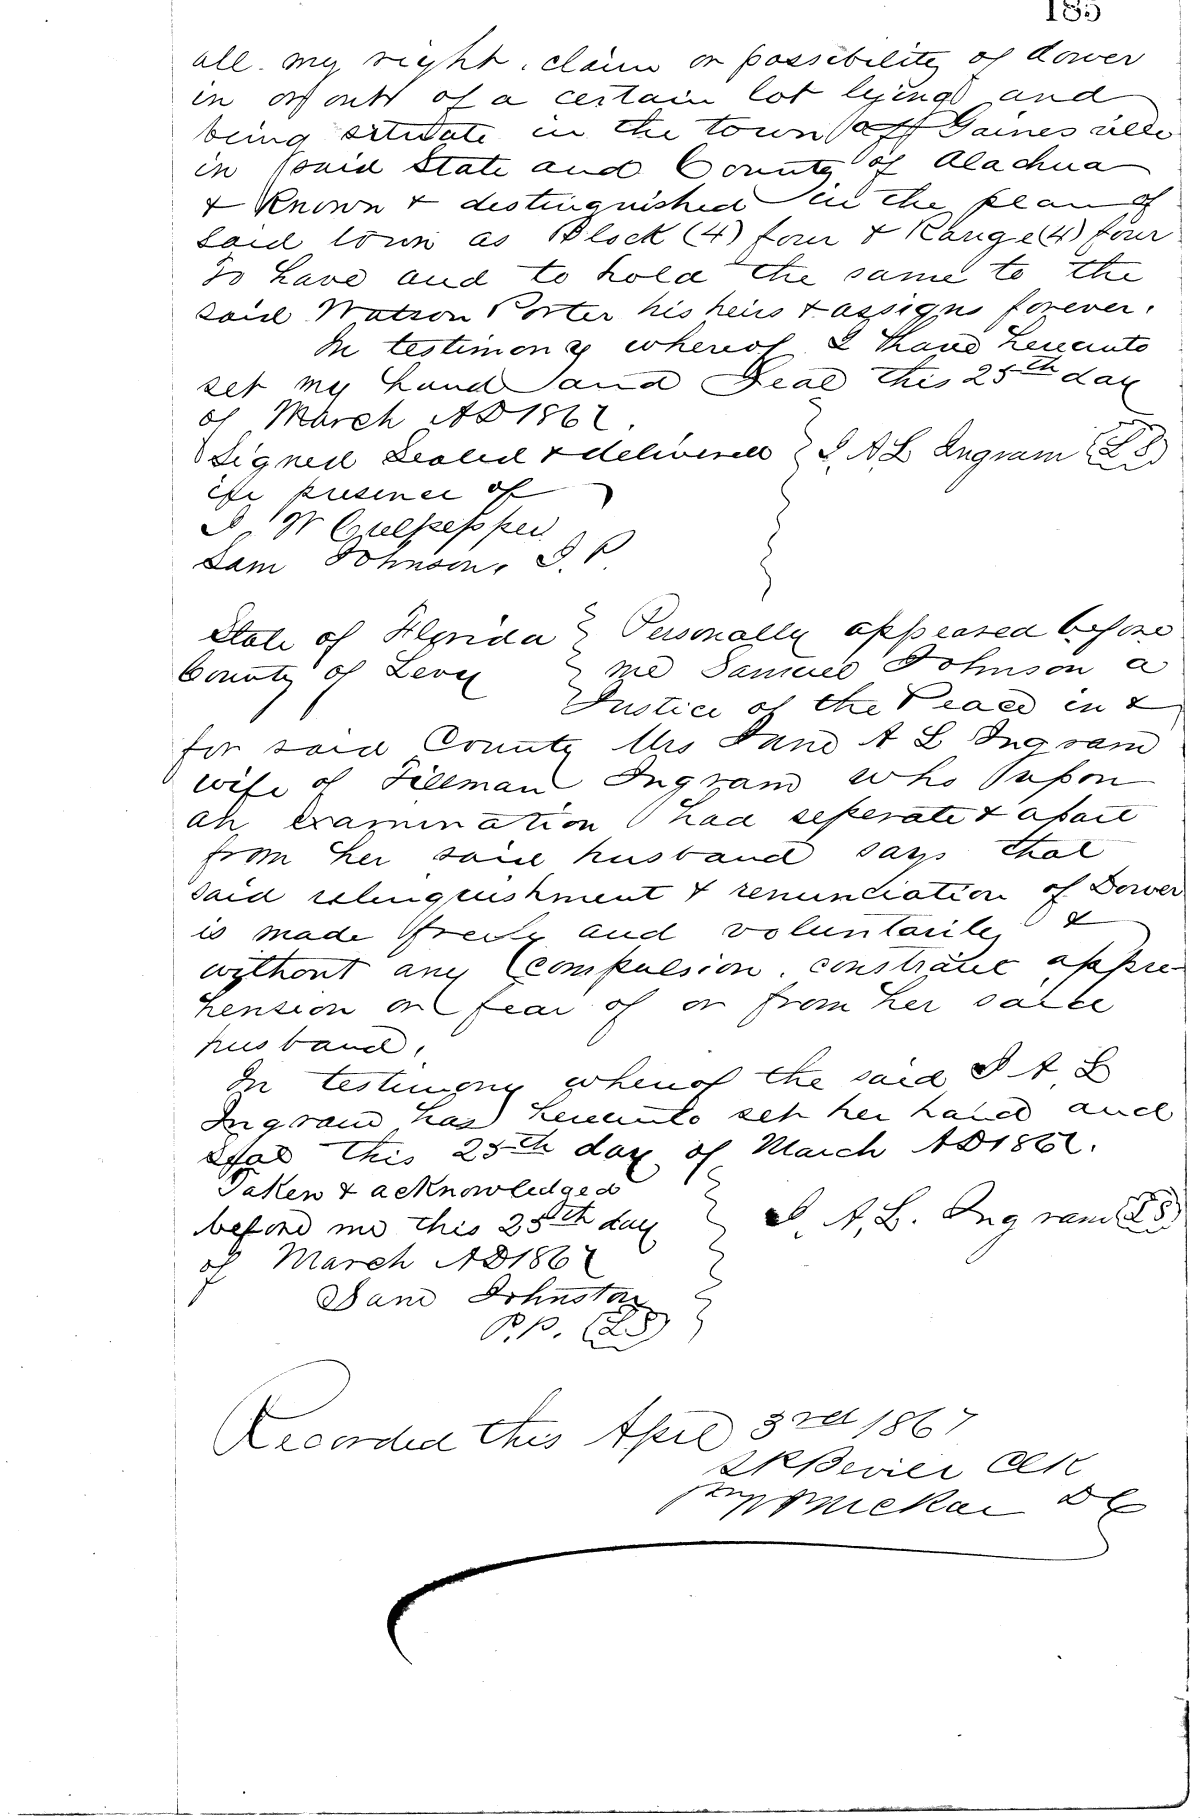 185
all my right, claim or possibility of dower
in or out of a certain lot lying and
being situate in the town of Gainesville
in said State and County of Alachua
& Known & destinguished in the plan of
said town as Block (4) four & Range (4) four
To have and to hold the same to the
said Watson Porter his heirs & assigns forever.
In testimony whereof I have hereunto
set my hand and Seal this 25th day
of March AD 1867.
Signed Sealed & delivered J. A L Ingram (LS)
in presence of
J W Culpepper
Sam Johnson, J. P.
State of Florida Personally appeared before
County of Levy me Samuel Johnson a
Justice of the Peace in &
for said County Mrs Jane A L Ingram
wife of Tillman Ingram who upon
an examination had seperate & apart
from her said husband says that
said relinquishment & renunciation of Dower
is made freely and voluntarily &
without any compulsion, constraint appre-
hension or fear of or from her said
husband.
In testimony whereof the said J A L
Ingram has hereunto set her hand and
seal this 25th day of March AD 1867.
Taken & acknowledged
before me this 25th day J. A. L. Ingram (LS)
of March AD 1867
Sam Johnston
(LS)
Recorded this April 3rd 1867
Clk
DC